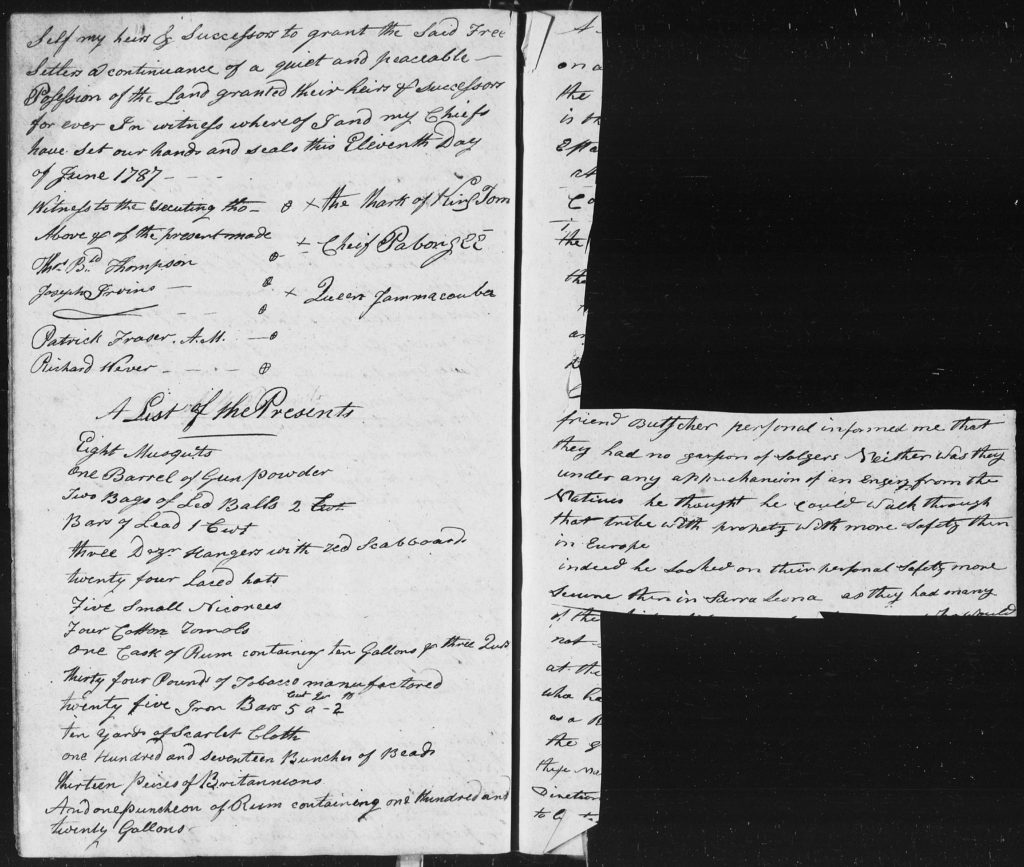 Self my heirs & Successors to grant the Said Free
Setlers a continuance of a quiet and peaceable —
Posession of the Land granted their heirs & successors
for ever In witness whereof I and my Chiefs
have Set our hands and seals this Eleventh Day
of June 1787 - - -
Witness to the Excuting tho— x the Mark of King Tom
Above & of the present made x Cheif Pabong EE
Thos. B.ld Thompson
Joseph Irvins — x Queen Jammacouba
Patrick Fraser. A.M. —
Richard Wever — - - -
A List of the Presents
Eight Musquts
one Barrel of Gun powder
Two Bags of Led Balls 2 Cwt
Bars of Lead 1 Cwt
three Dozn Hangers with red Scabboards
twenty four Laced hats
Five Small Niconees
Four Cotton Romols
one Cask of Rum containing ten Gallons & three
thirty four Pounds of Tobacco manufactored
twenty five Iron Bars 5 a - 2
ten Yards of Scarlet Cloth
one Hundred and seventeen Bunches of Beads
thirteen Peices of Britannions
And one puncheon of Rum containing one Hundred and
twenty Gallons -
on a
the
is
the
friend personal informed me that
they had no of Solgers Neither was they
under any apprehension of an from the
Natives he thought he could Walk through
that tribe with propety with more Safety then
in Europe
indeed he Looked on their personal Safety more
Secure then in Sierra Leona as they had many
of the
not
at the
who ha
as a
the
Direction
to